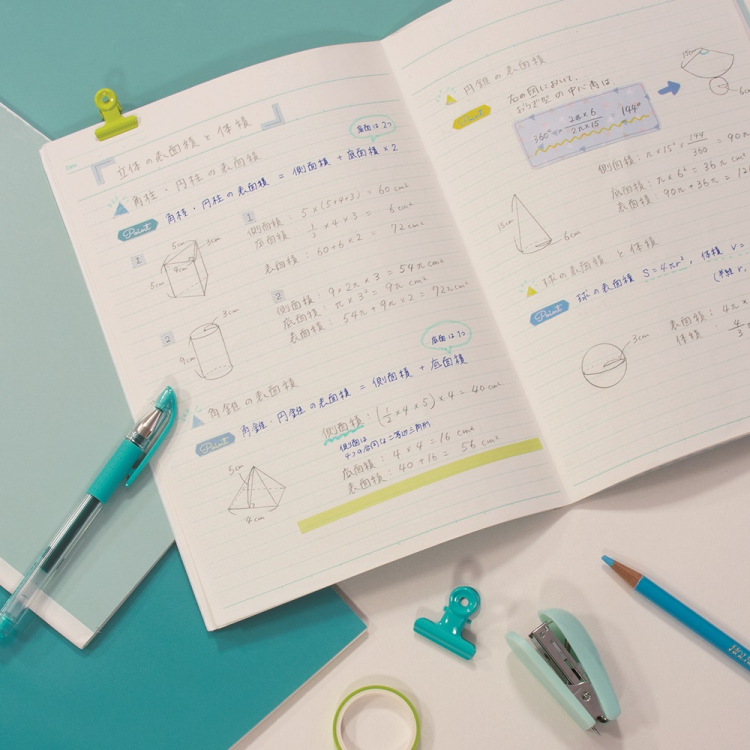 立体の表面積と体積
角柱・円柱の表面積
底面は2つ
Point
角柱・円柱の表面積 = 側面積 + 底面積×2
1
5cm
3cm
4cm
5cm
1
側面積: 5×(5+4+3) = 60cm²
底面積: 1/2×4×3 = 6cm²
表面積: 60+6×2 = 72cm²
2
3cm
9cm
2
側面積: 9×2π×3 = 54πcm²
底面積: π×3² = 9πcm²
表面積: 54π+9π×2 = 72πcm²
角錐の表面積
底面は1つ
Point
角錐・円錐の表面積 = 側面積 + 底面積
5cm
4cm
側面積: (1/2×4×5)×4 = 40cm²
側面は
4つの合同な二等辺三角形
底面積: 4×4=16cm²
表面積: 40+16 = 56cm²
円錐の表面積
Point
右の図において、
おうぎ型の中心角は、
360°× 2π×6/2π×15 144°
15cm
6cm
側面積: π×15²×144/360 = 90π
底面積: π×6² = 36πcm²
表面積: 90π+36π = 12
15cm
6cm
球の表面積と体積
Point
球の表面積 S=4πr², 体積 V=
(半径r,
3cm
表面積: 4π×
体積: 4/3